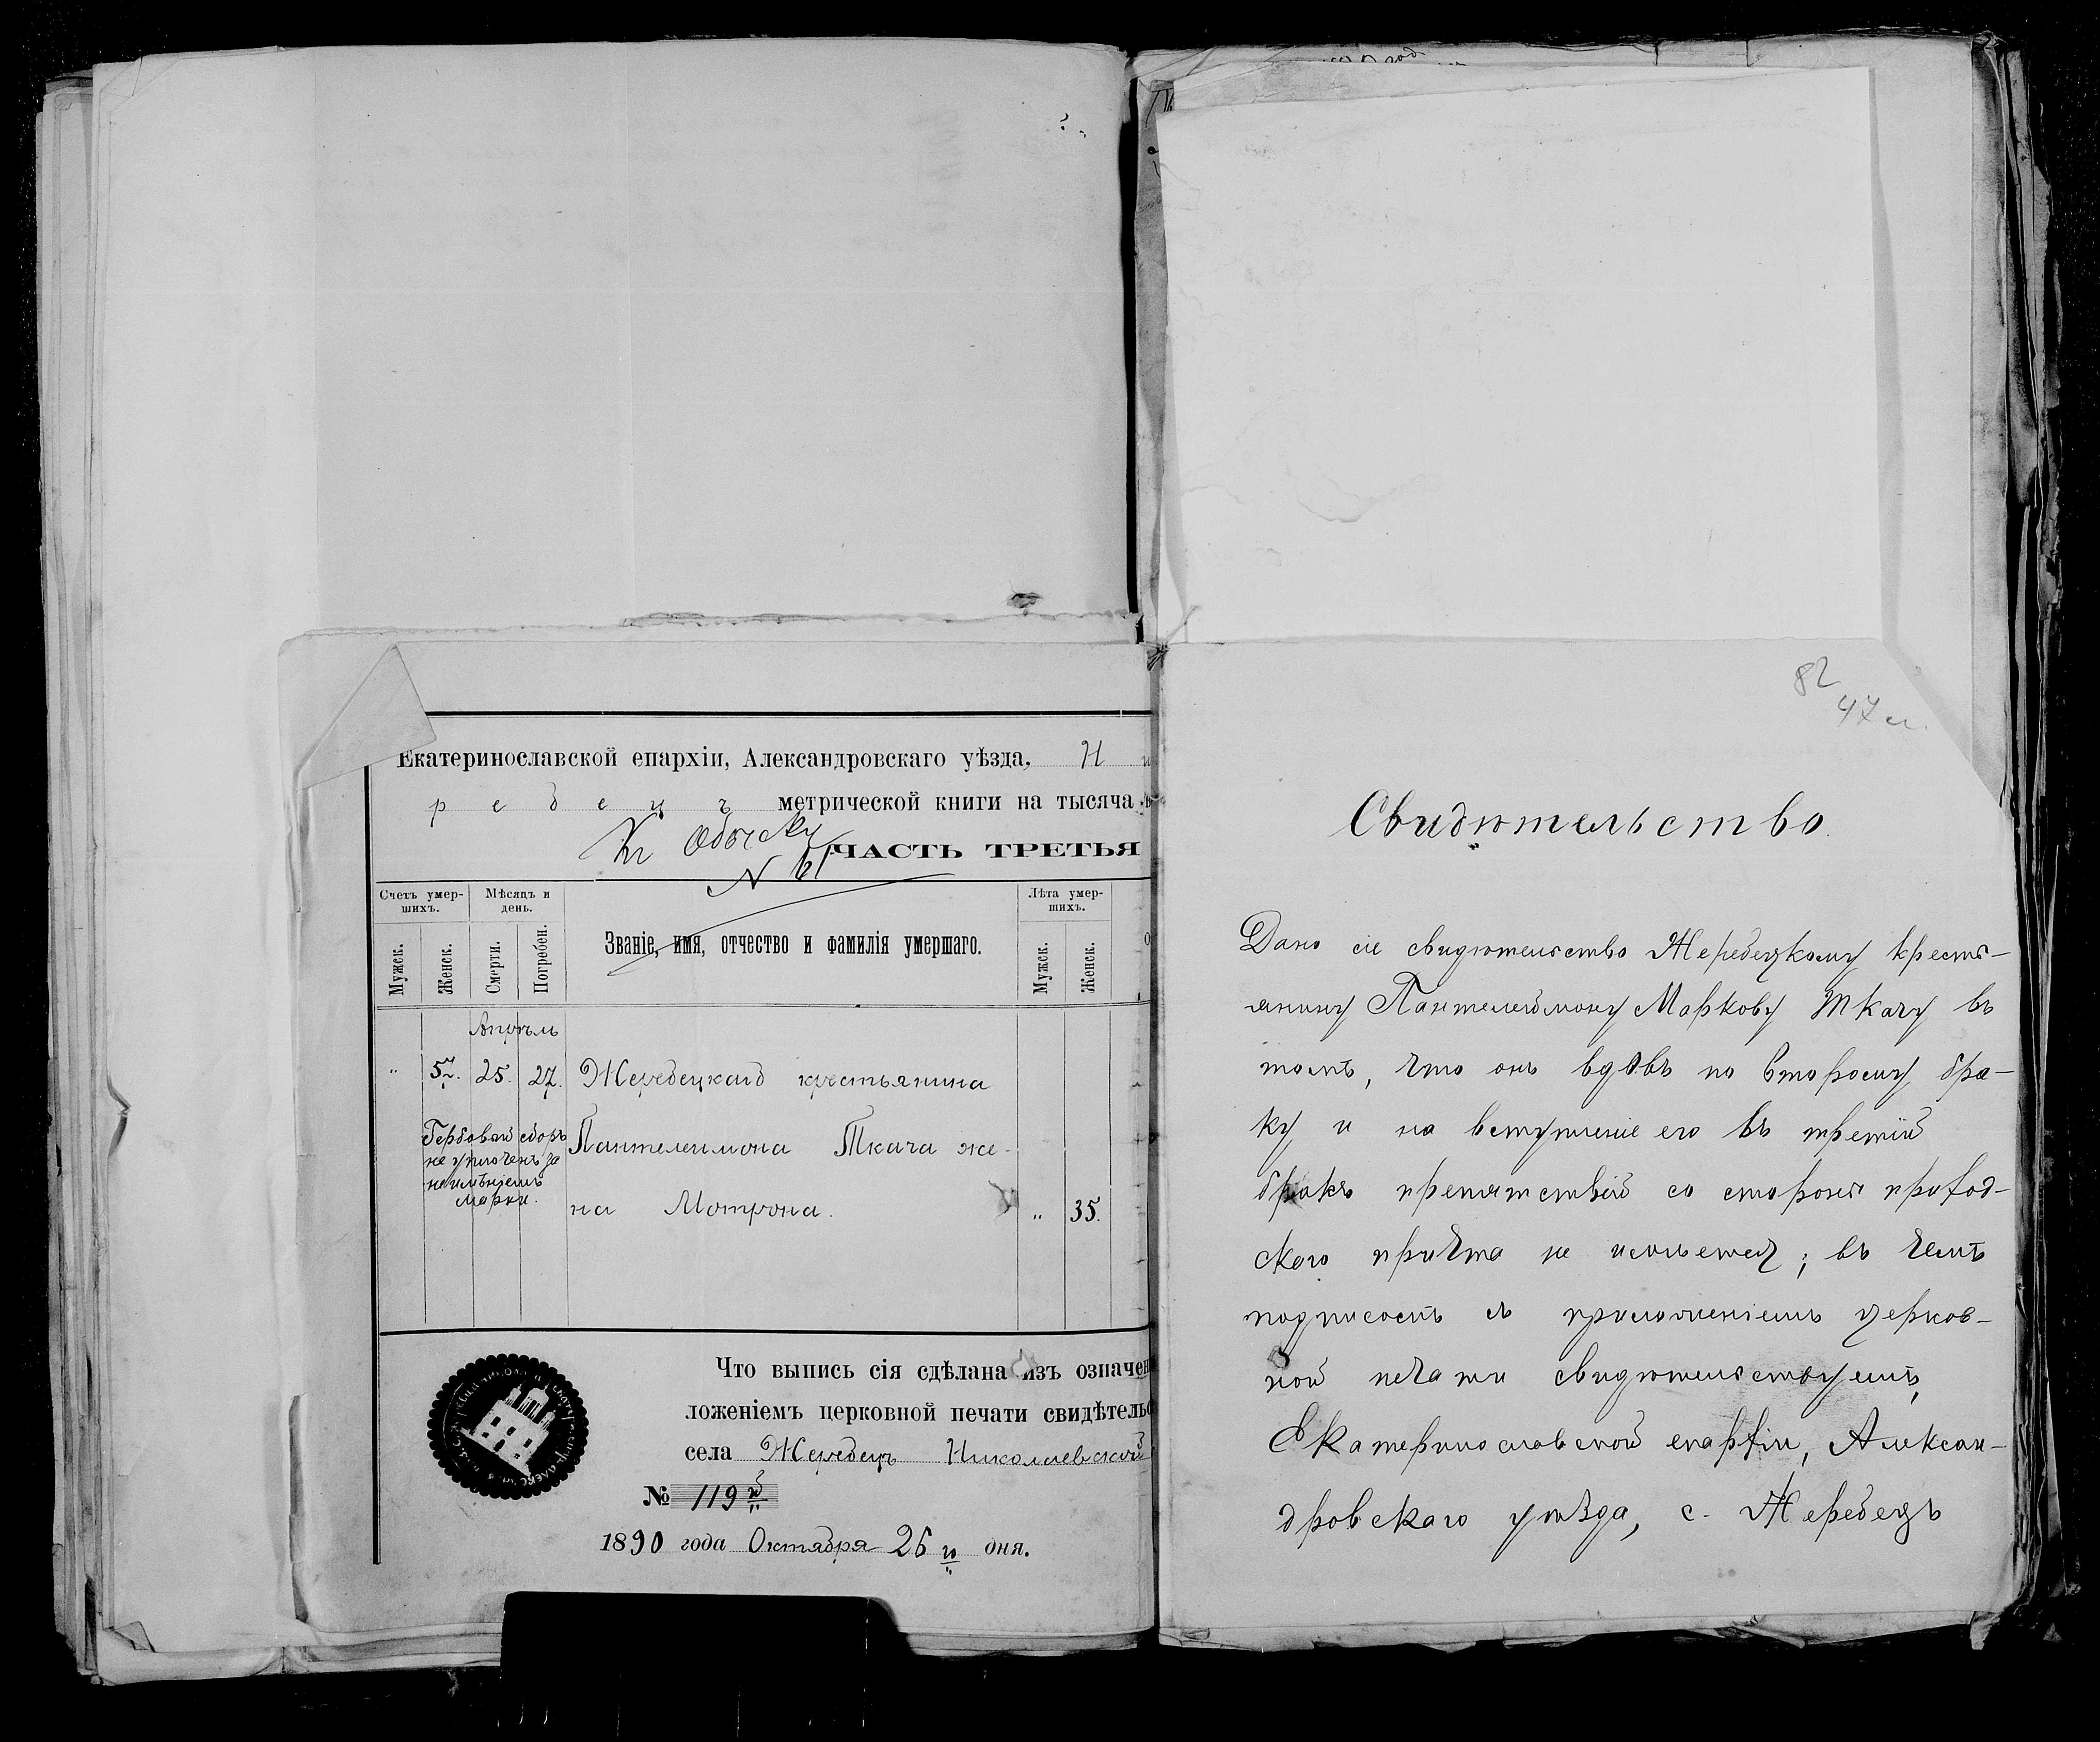 Екатеринославской епархіи, Александровскаго уѣзда, Н
р е б е ц ъ метрической книги на тысяча
Къ Обыску
N 61
ЧАСТЬ ТРЕТЬЯ
Счетъ умер-
шихъ.
Мѣсяцъ и
день.
Званіе, имя, отчество и фамилія умершаго.
Лѣта умер-
шихъ.
Мужск.
Женск.
Смерти.
Погребен.
Мужск.
Женск.
Апрѣль
" 57. 25. 27. Жеребецкаго крестьянина
Пантелеимона Ткача же-
на Мотрона. " 35.
Гербовый сборъ
не уплоченъ за
неимѣніемъ
марки.
Что выпись сія сдѣлана изъ означен
ложеніемъ церковной печати свидѣтель
села Жеребецъ Николаевской
№ 119й
1890 года Октября 26го дня.
82
47
Свидѣтельство.
Дано сіе свидѣтельство Жеребецкому кресть-
янину Пантелеймону Маркову Ткачу въ
томъ, что онъ вдовъ по второму бра-
ку и на вступленіе его въ третій
бракъ препятствій со стороны приход-
скаго причта не имѣется; въ чемъ
подписомъ съ приложеніемъ церков-
ной печати свидѣтельствуемъ,
Екатеринославской епархіи, Алексан-
дровскаго уѣзда, с. Жеребецъ